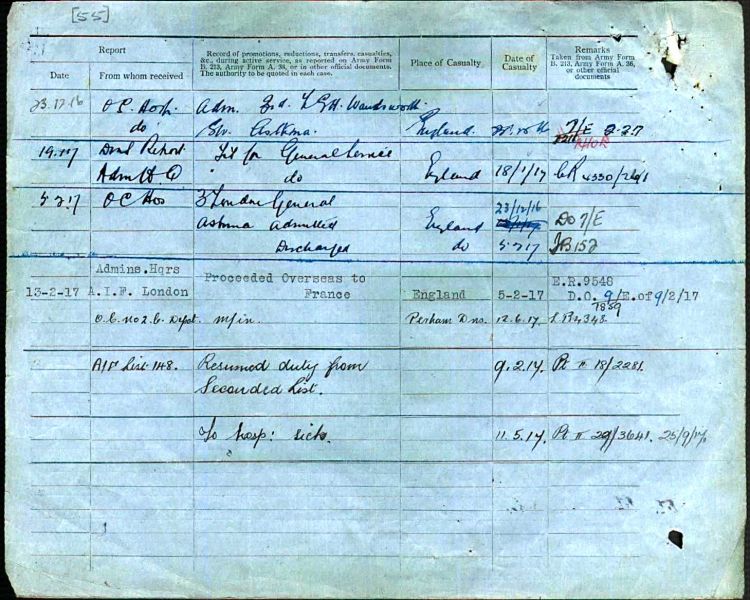 [55]
Report
Date
From whom received
Record of promotions, reductions, transfers, casualties,
&c., during active service, as reported on Army Form
B. 213, Army Form A. 36, or in other official documents.
The authority to be quoted in each case.
Place of Casualty
Date of
Casualty
Remarks
Taken from Army Form
B. 213, Army Form A. 36,
or other official
documents
23.12.16 O C Hosp. Adm. 3rd. L G H. Wandsworth.
do Asthma. England 7/E 2-2-17
Fit for General Service
Adm H Q " do England 18/1/17 CR
5.2.17 O C Hos 3 London General 23/12/16
Asthma admitted England DO 7/E
Discharged do 5.2.17 JB152
13-2-17 Admins.Hqrs
A.I.F. London Proceeded Overseas to
France England 5-2-17 E.R.9546
D.O. 9/E.of 9/2/17
7859
O.C. No 2 C. Depot. M/in. Perham Dns. 12.6.17 L R 4348
AIF List 148. Resumed duty from 9.2.17. Pt II 18/2281.
Seconded List.
To hosp: sick. 11.5.17. Pt II 29/3641. 25/9/17.